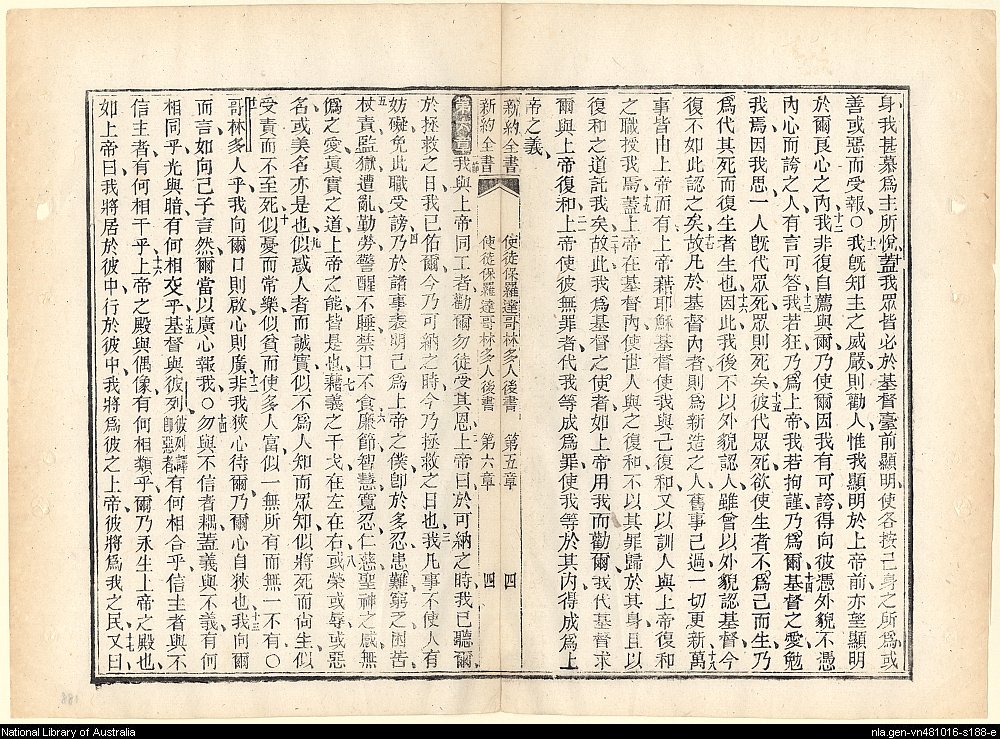 身、我甚慕爲主所悅、十蓋我眾皆必於基督臺前顯明、使各按己身之所爲或
善或惡而受報○十一我既知主之威嚴則勸人惟我顯明於上帝前亦望顯明
於爾良心之內十二我非復自薦與爾乃使爾因我有可誇得向彼憑外貌不憑
內心而誇之人有言可答十三我若狂乃爲上帝我若拘謹乃爲爾十四基督之愛勉
我焉因我思一人既代眾死眾則死矣十五彼代眾死欲使生者不爲己而生乃
爲代其死而復生者生也十六因此我後不以外貌認人雖曾以外貌認基督今
復不如此認之矣十七故凡於基督內者則爲新造之人舊事已過一切更新十八萬
事皆由上帝而有上帝藉耶穌基督使我與己復和又以訓人與上帝復和
之職授我焉十九蓋上帝在基督內使世人與之復和不以其罪歸於其身且以
復和之道託我矣二十故此我爲基督之使者如上帝用我而勸爾我代基督求
爾與上帝復和二一上帝使彼無罪者代我等成爲罪使我等於其內得成爲上
帝之義、
新約全書 使徒保羅達哥林多人後書 第五章 四
新約全書 使徒保羅達哥林多人後書 第六章 四
第六章 一節我與上帝同工者勸爾勿徒受其恩二上帝曰於可納之時我已聽爾
於拯救之日我已佑爾今乃可納之時今乃拯救之日也三我凡事不使人有
妨礙免此職受謗四乃於諸事表明己爲上帝之僕即於多忍患難窮乏困苦
五杖責監獄遭亂勤勞警醒不睡禁口不食六廉節智慧寬忍仁慈聖神之感無
僞之愛七眞實之道上帝之能皆是也藉義之干戈在左在右八或榮或辱或惡
名或美名亦是也似惑人者而誠實九似不爲人知而眾知似將死而尚生似
受責而不至死十似憂而常樂似貧而使多人富似一無所有而無一不有○
十一哥林多人乎我向爾口則啟心則廣十二非我狹心待爾乃爾心自狹也十三我向爾
而言如向己子言然爾當以廣心報我○十四勿與不信者耦蓋義與不義有何
相同乎光與暗有何相交乎十五基督與彼列彼列譯即惡者有何相合乎信主者與不
信主者有何相干乎十六上帝之殿與偶像有何相類乎爾乃永生上帝之殿也
如上帝曰我將居於彼中行於彼中我將爲彼之上帝彼將爲我之民十七又曰
881
National Library of Australia
nla.gen-vn481016-s188-e